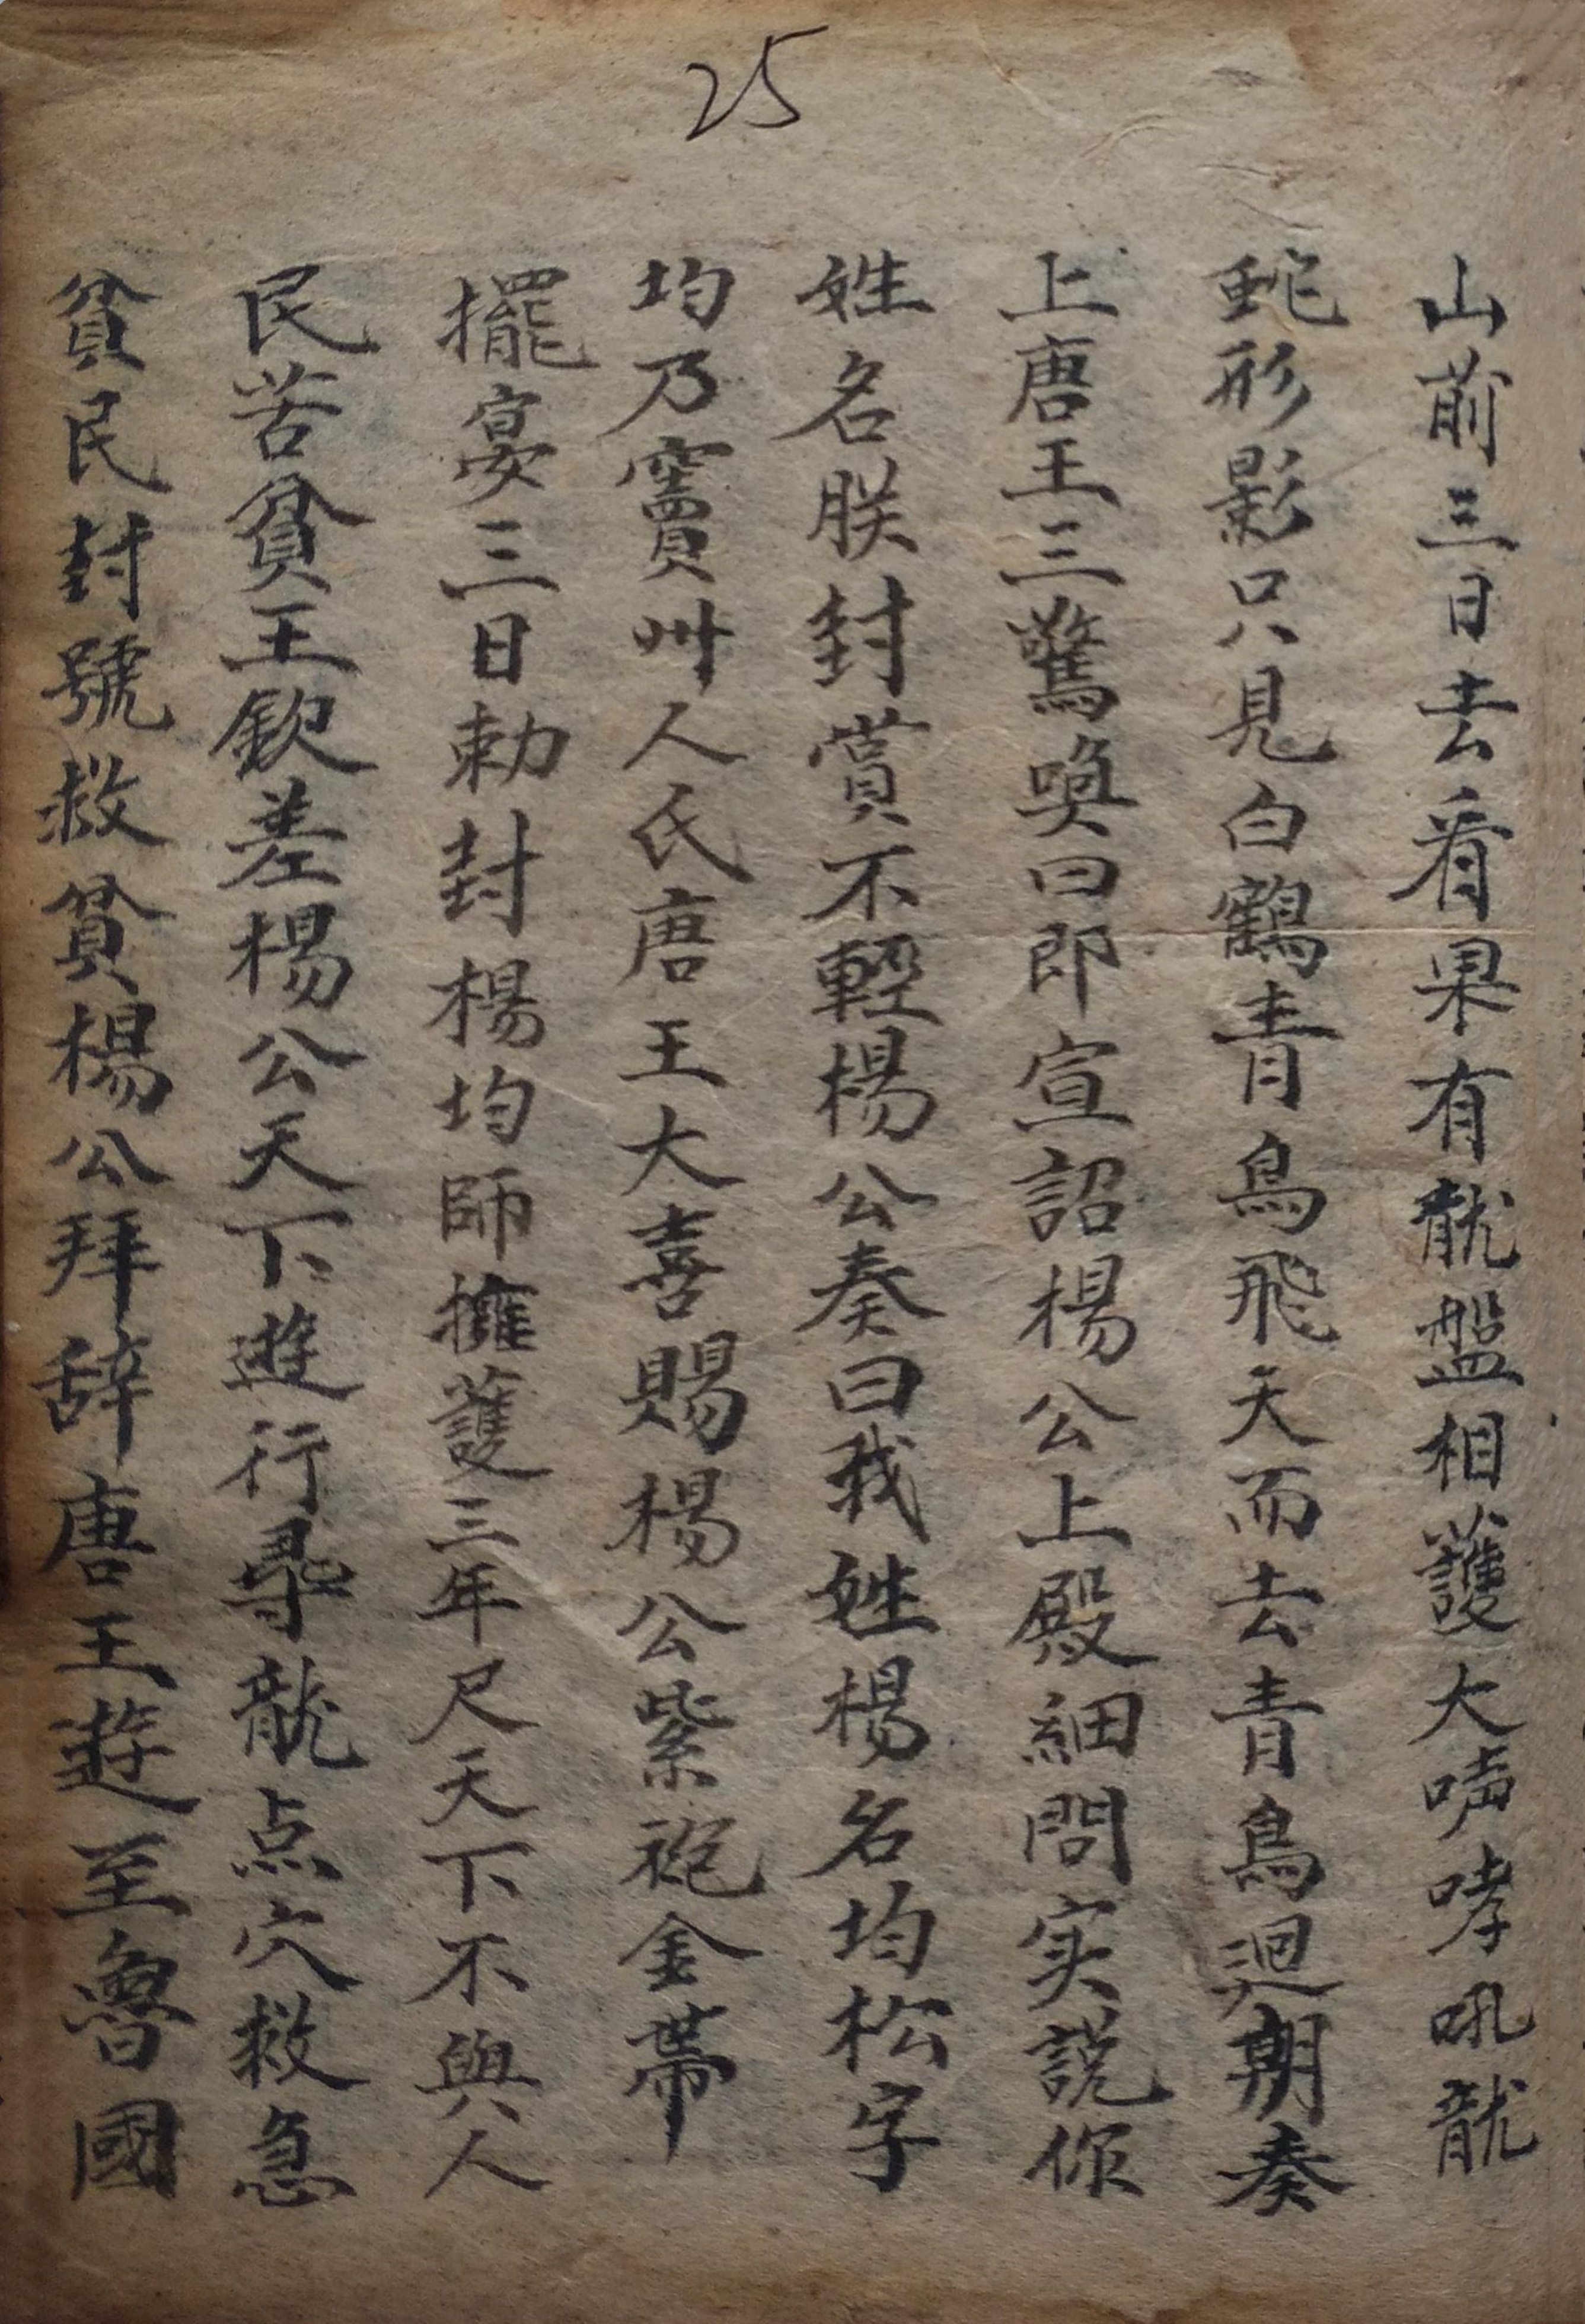 25
山前三日去看果有龍盤相護大嘵哮吼龍
蛇形影只見白鶴青鳥飛天而去青鳥迴朝奏
上唐王三驚喚曰即宣詔楊公上殿細問实說你
姓名朕封賞不輕楊公奏曰我姓楊名均松字
均乃竇州人氏唐王大喜賜楊公紫袍金帶
擺宴三日勅封楊均師擁護三年尺天下不與人
民苦貧王欽差楊公天下遊行尋龍点穴救急
貧民封號救貧楊公拜辞唐王遊至魯國